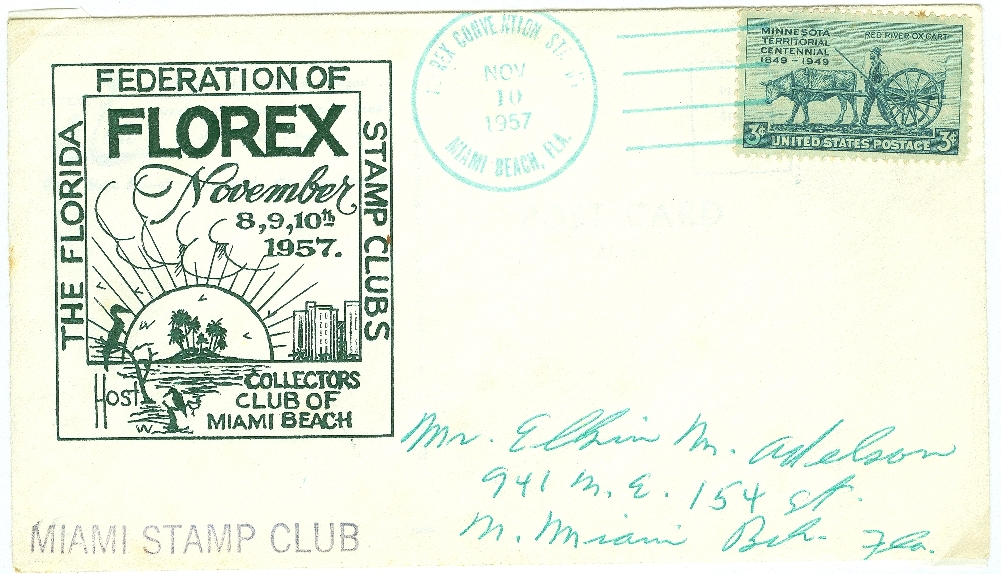 FEDERATION OF
THE FLORIDA
STAMP CLUBS
FLOREX
November
8,9,10th
1957.
HOST
COLLECTORS
CLUB OF
MIAMI BEACH
REX CONVENTION STA.
NOV
10
1957
MIAMI BEACH, FLA.
MINNESOTA
TERRITORIAL
CENTENNIAL
1849-1949
RED RIVER OX CART
3¢ UNITED STATES POSTAGE 3¢
Mr. Elkin M. Adelson
941 N.E. 154 St.
N. Miami Bch. Fla.
MIAMI STAMP CLUB